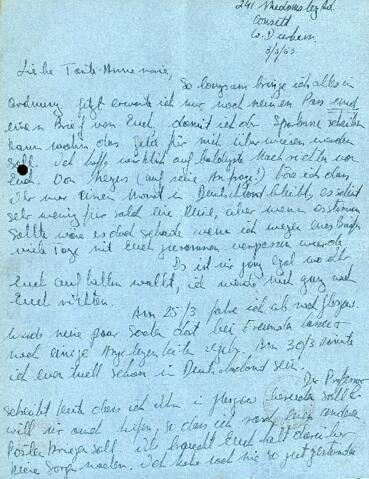 241 Medomsley Rd.
Consett
Co. Durham.
8/3/53
Liebe Tante Annemarie,
So langsam bringe ich alles in
ordnung. Jetzt erwarte ich nur noch meinen Pass und
einen Brief von Euch, damit ich der schreiben
kann wohin das Geld für mich überwiesen werden
soll. Ich hoffe wirklich auf baldigste Nachrichten von
Euch. Von (auf seine Anfrage!) höre ich dass
Ihr nur einen Monat in Deutschland bleibt, es scheint
sehr wenig für solch eine Reise, aber wenn es stimmen
sollte wäre es doch schade wenn ich wegen eines
viele Tage mit Euch zusammen verpassen würde
Es ist mir ganz egal wo Ihr
Euch aufhalten wollt, ich werde mich ganz nach
Euch richten.
Am 25/3 fahre ich ab nach Glasgow.
werde meine paar Sachen dort bei Freunden lassen
noch einige Angelegenheiten regeln. Am 30/3 könnte
ich eventuell schon in Deutschland sein.
Der Professor
schreibt heute dass ich ihn in Glasgow besuchen soll &
will mir auch helfen, so dass ich einen anderen
Posten kriegen soll. Ihr braucht Euch halt darüber
keine Sorgen machen. Ich habe noch nie so gut